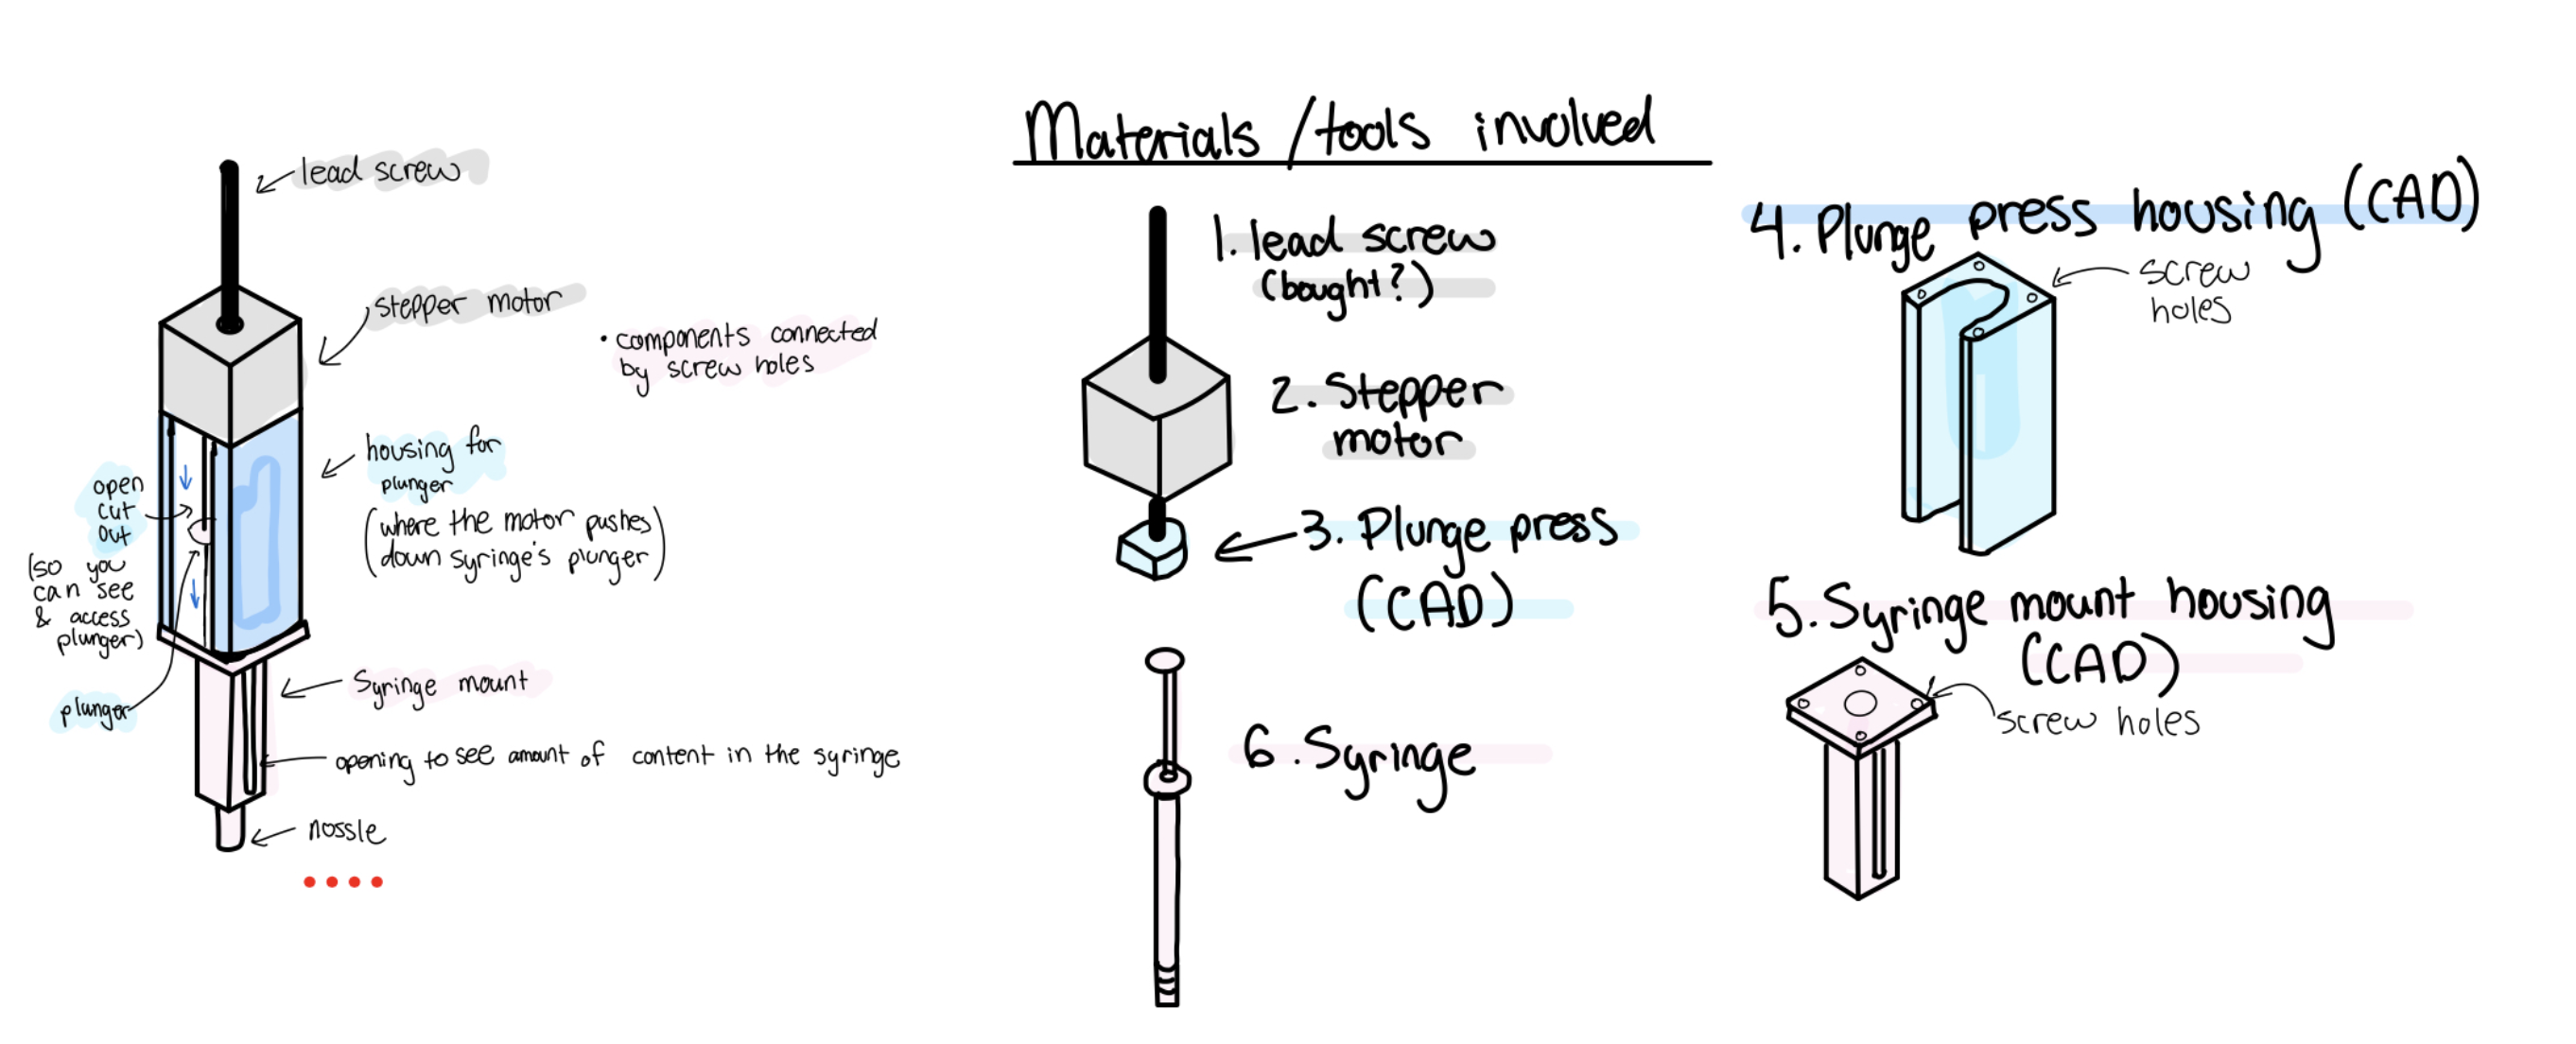 lead screw
stepper motor
• components connected
by screw holes
housing for
plunger
(where the motor pushes
down syringe's plunger)
open
cut
out
(so you
can see
& access
plunger)
plunger
Syringe mount
opening to see amount of content in the syringe
nossle
Materials / tools involved
1. lead screw
(bought?)
2. Stepper
motor
3. Plunge press
(CAD)
6. Syringe
4. Plunge press housing (CAD)
screw
holes
5. Syringe mount housing
(CAD)
screw holes